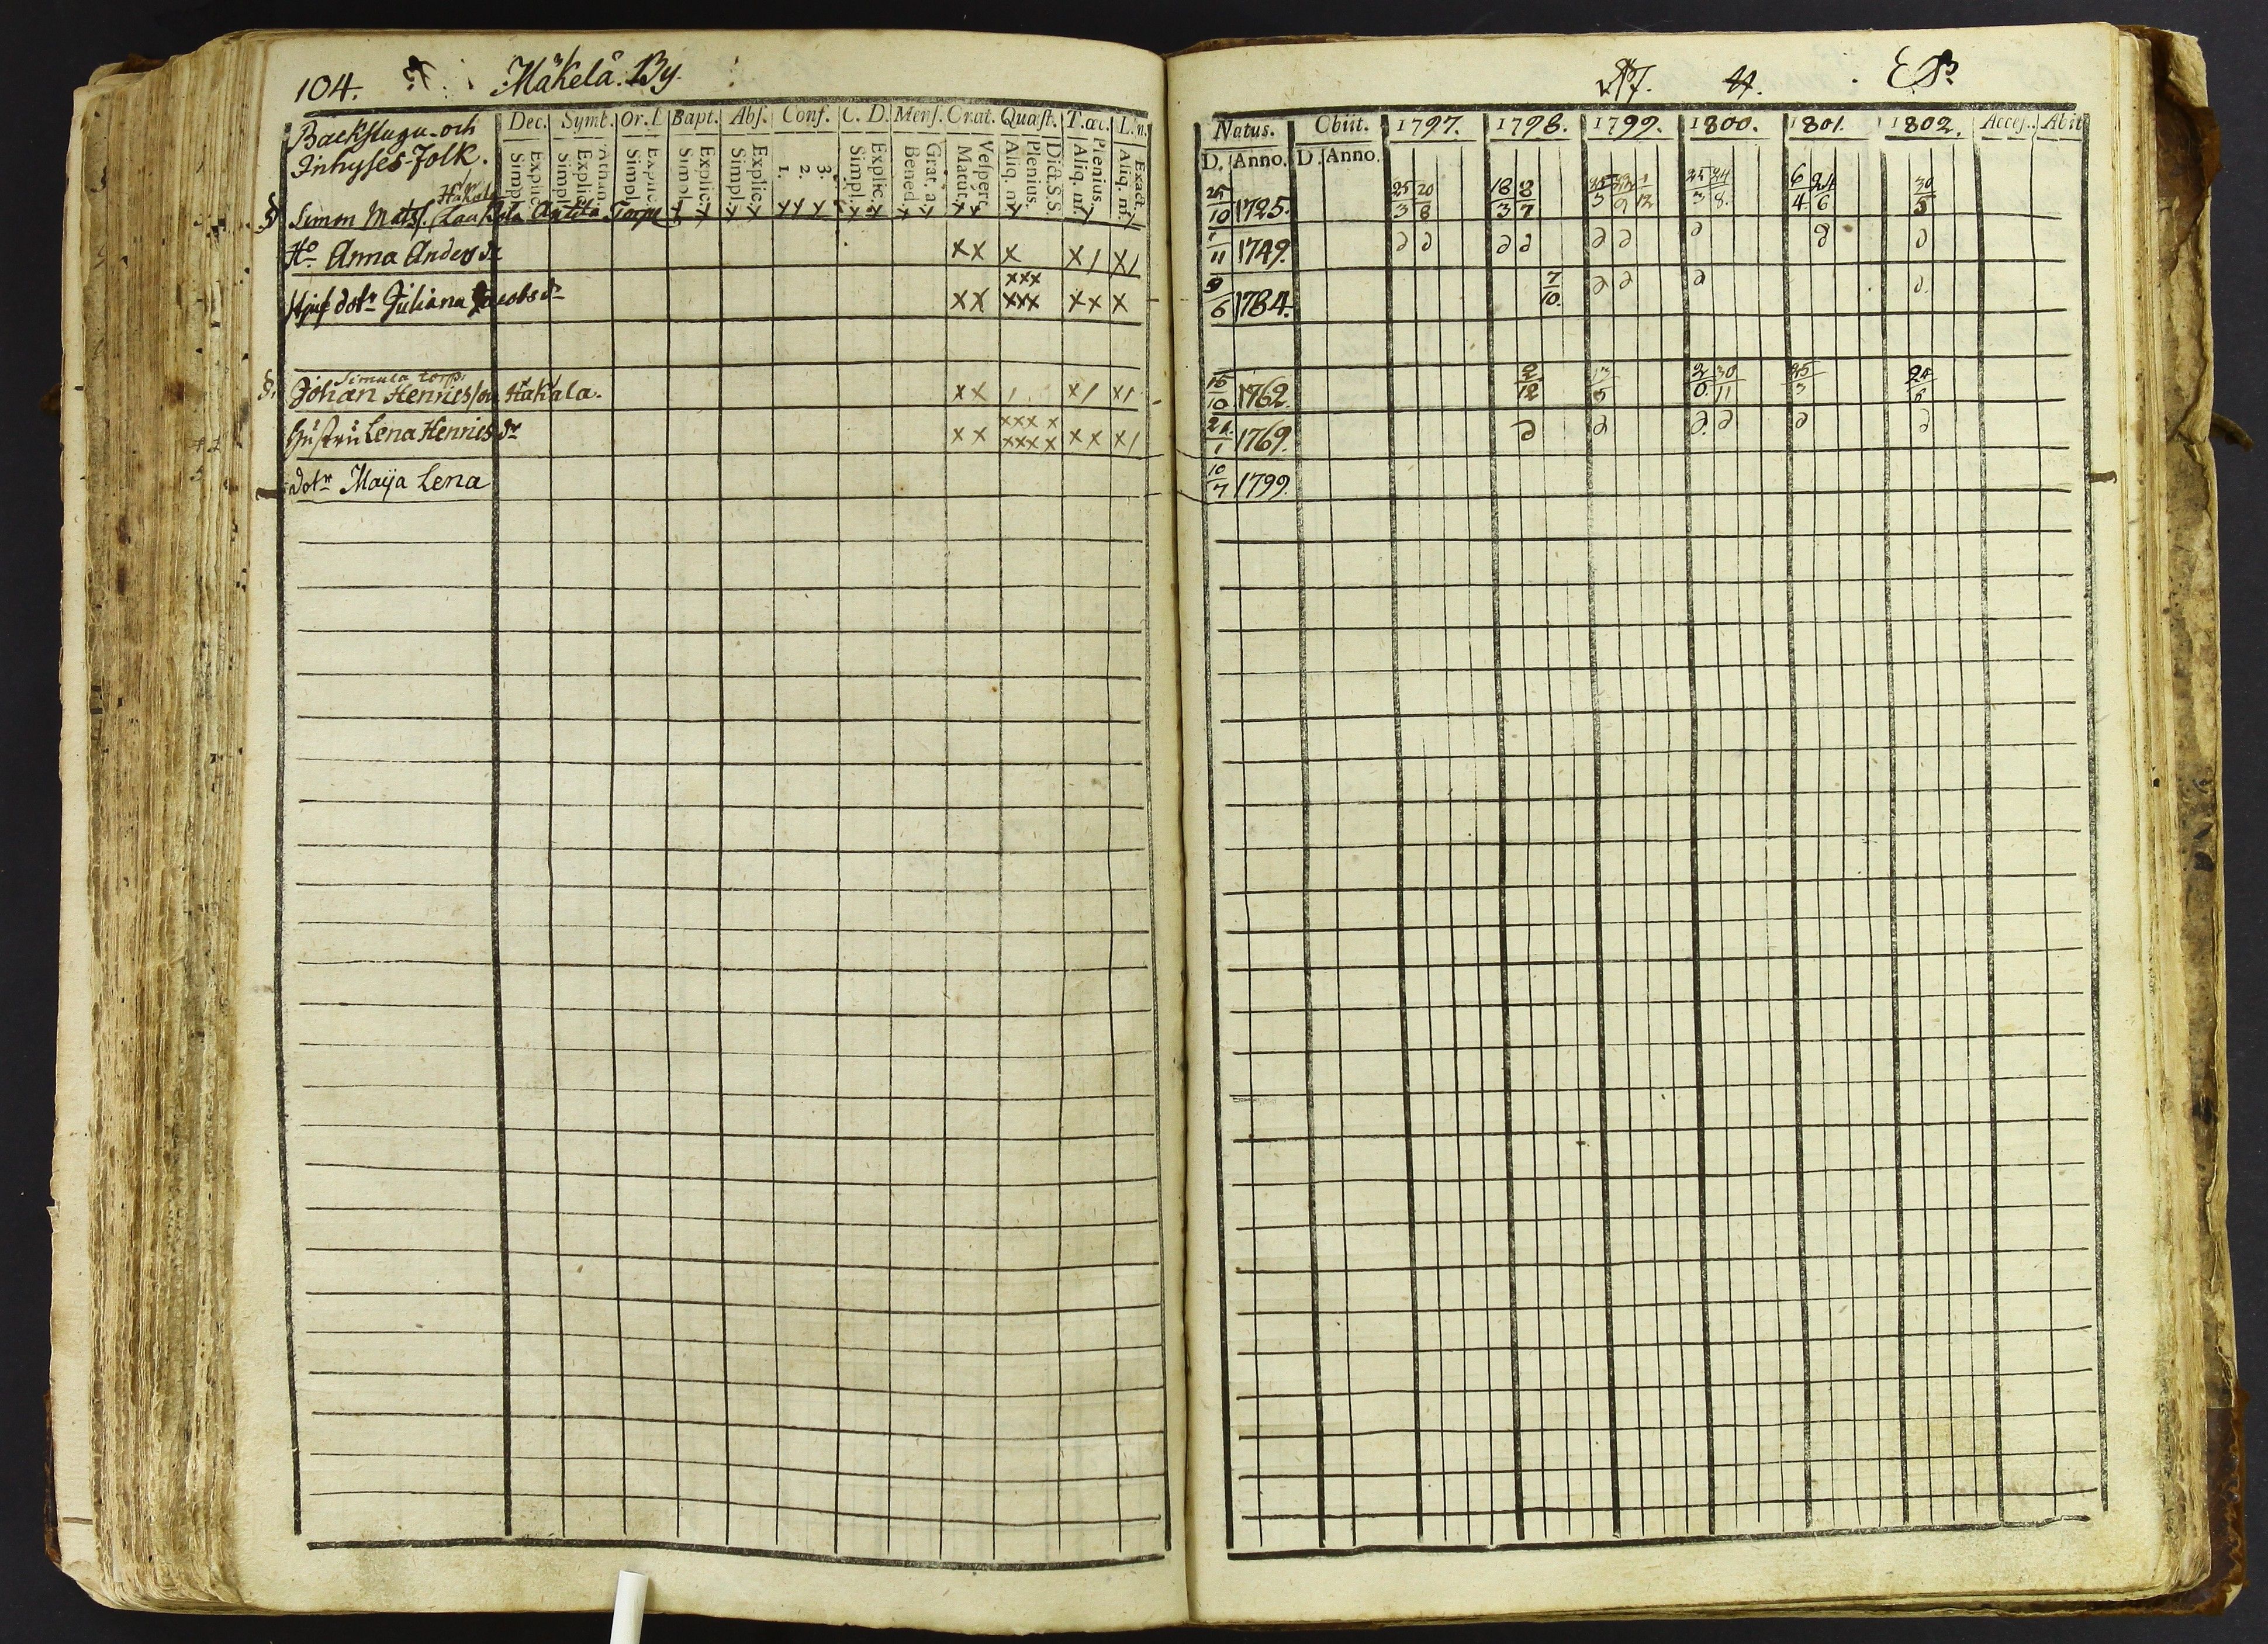 104. Mäkelä. By.
N:o 4.
Backstugu- och
Inhyses-Folk.
Dec. Symb. Or. D. Bapt. Abs. Conf. C. D. Mens. Orat. Quæst. T. œc. L. n.
Simpl. Explic. Simpl. Explic. Athan. Simpl. Explic. Simpl. Explic. Simpl. Explic. 1. 2. 3. Simpl. Explic. Bened. Grat. a. Matut. Vesper. Aliq. m. Plenius. Dicta S.S. Aliq. m. Plenius. Aliq. m. Exact.
Natus. Obiit. 1797. 1798. 1799. 1800. 1801. 1802. Access. Abit
D. Anno. D. Anno.
Hakala
Simon Mats. Antila Torp x x x x x x x x x x x x x x x 25/10 1725. 25/3 20/8 18/3 8/7 25/3 24/8 6/4 24/6 30/5
H:o Anna Andersdr x x x x / x / 1/11 1749. ∂ ∂ ∂ ∂ ∂ ∂ ∂ ∂ ∂
xxx
dotr Juliana Jacobsdr x x xxx x x x 9/6 1784. 7/10. ∂ ∂ ∂ ∂
Simula torp.
Johan Henricsson Hakala. x x / x / x / 16/10 1762. 2/12 13/3 30/11 25/3
xxx x
Hustru Lena Henricsdr x x xxx x x x x / 1769. ∂ ∂ ∂ ∂ ∂ ∂
dotr Maija Lena 10/7 1799.